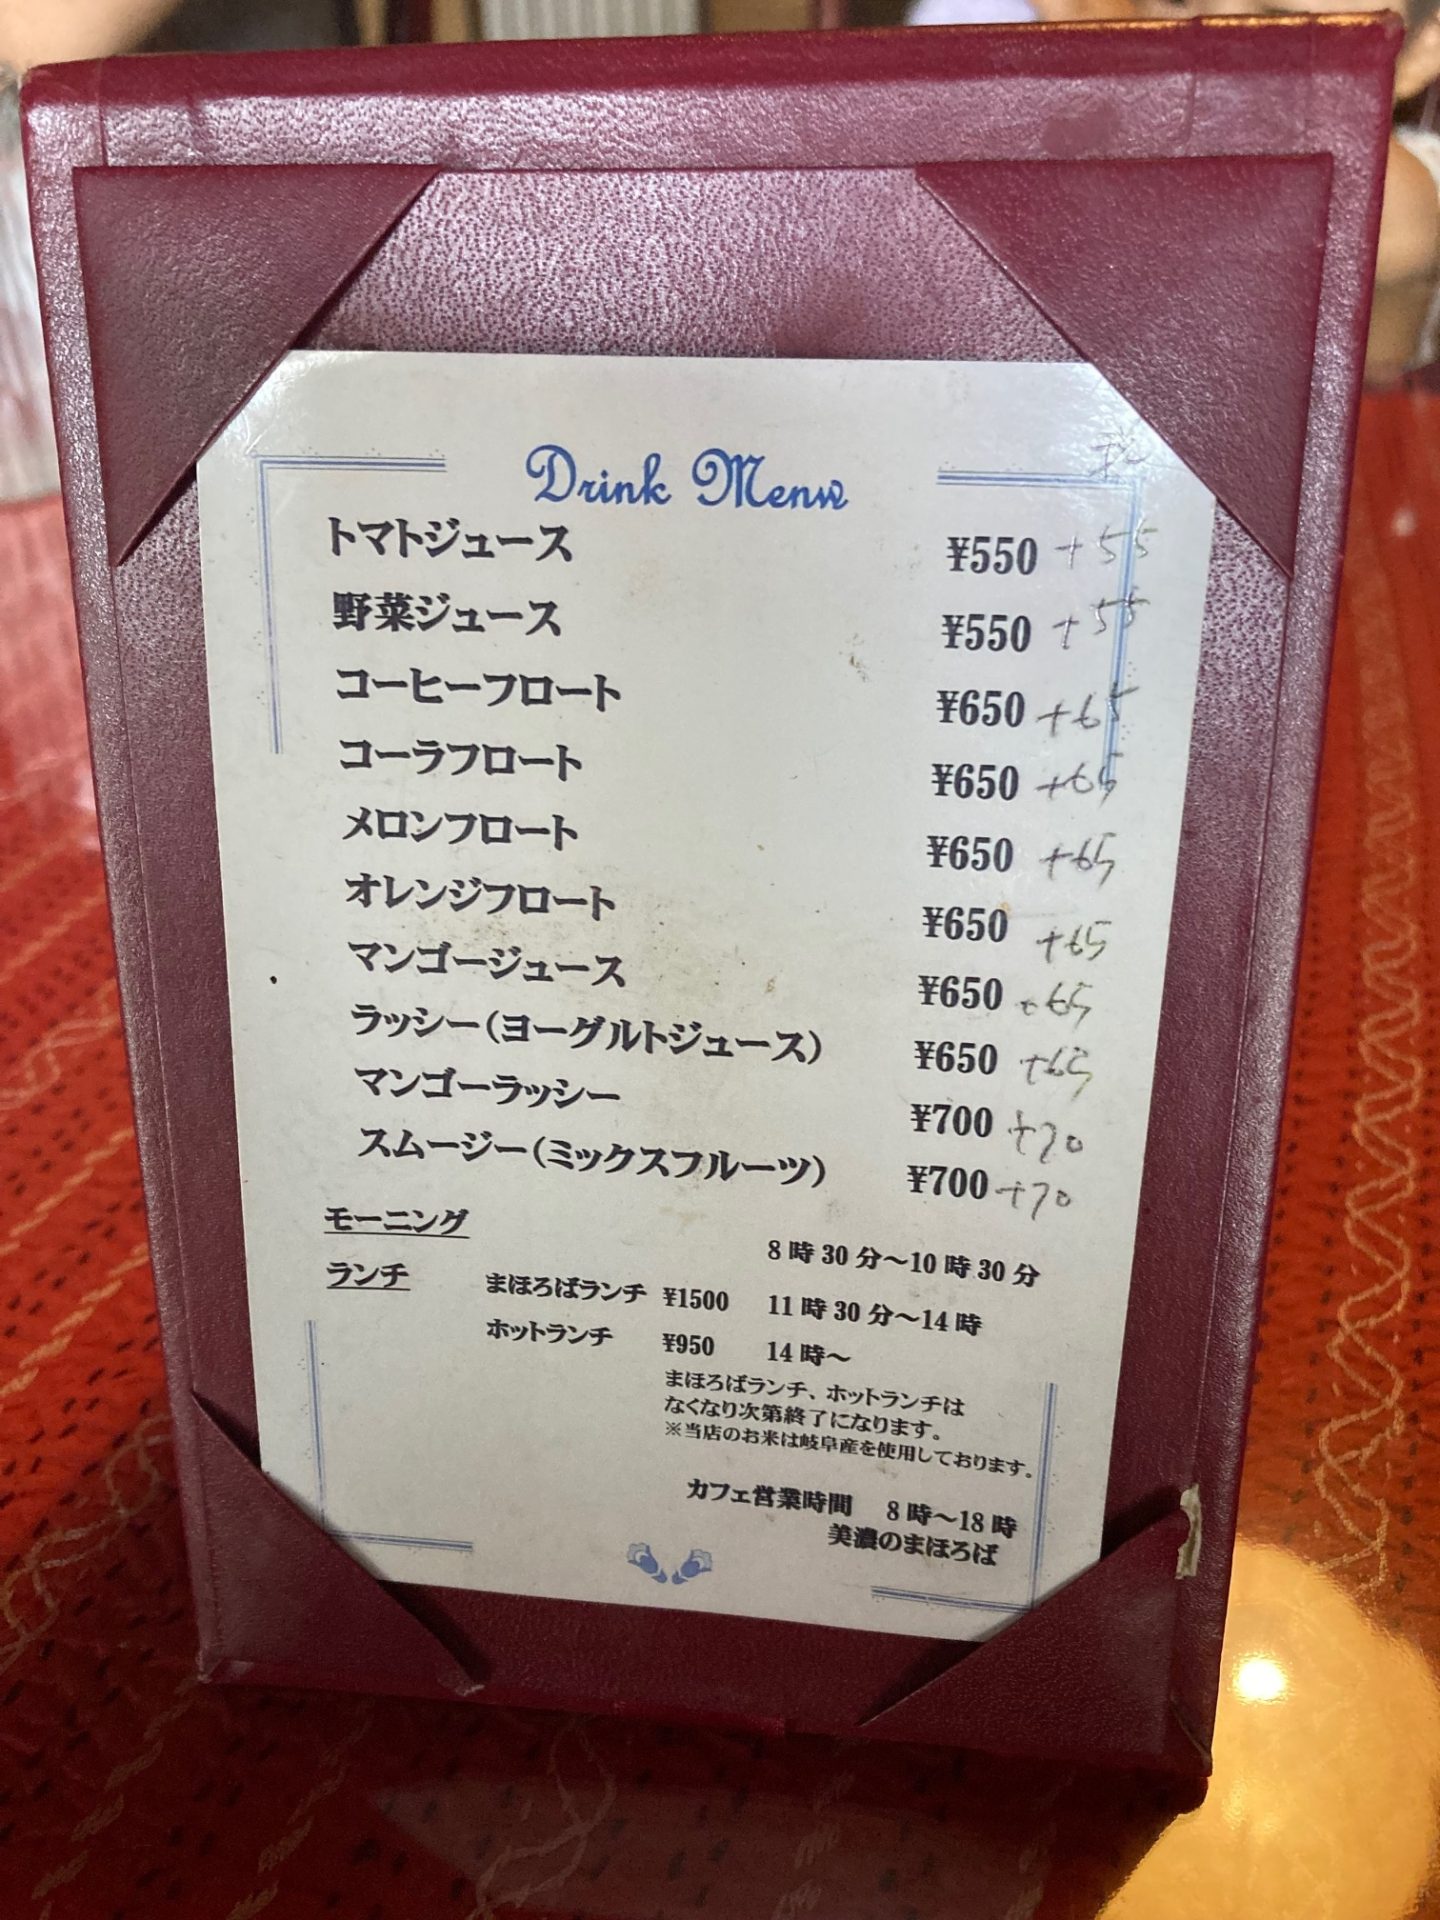 Drink Menu
税
トマトジュース ¥550 +55
野菜ジュース ¥550 +55
コーヒーフロート ¥650 +65
コーラフロート ¥650 +65
メロンフロート ¥650 +65
オレンジフロート ¥650 +65
マンゴージュース ¥650 +65
ラッシー(ヨーグルトジュース) ¥650 +65
マンゴーラッシー ¥700 +70
スムージー(ミックスフルーツ) ¥700 +70
モーニング 8時30分～10時30分
ランチ まほろばランチ ¥1500 11時30分～14時
ホットランチ ¥950 14時～
まほろばランチ、ホットランチは
なくなり次第終了になります。
※当店のお米は岐阜産を使用しております。
カフェ営業時間 8時～18時
美濃のまほろば